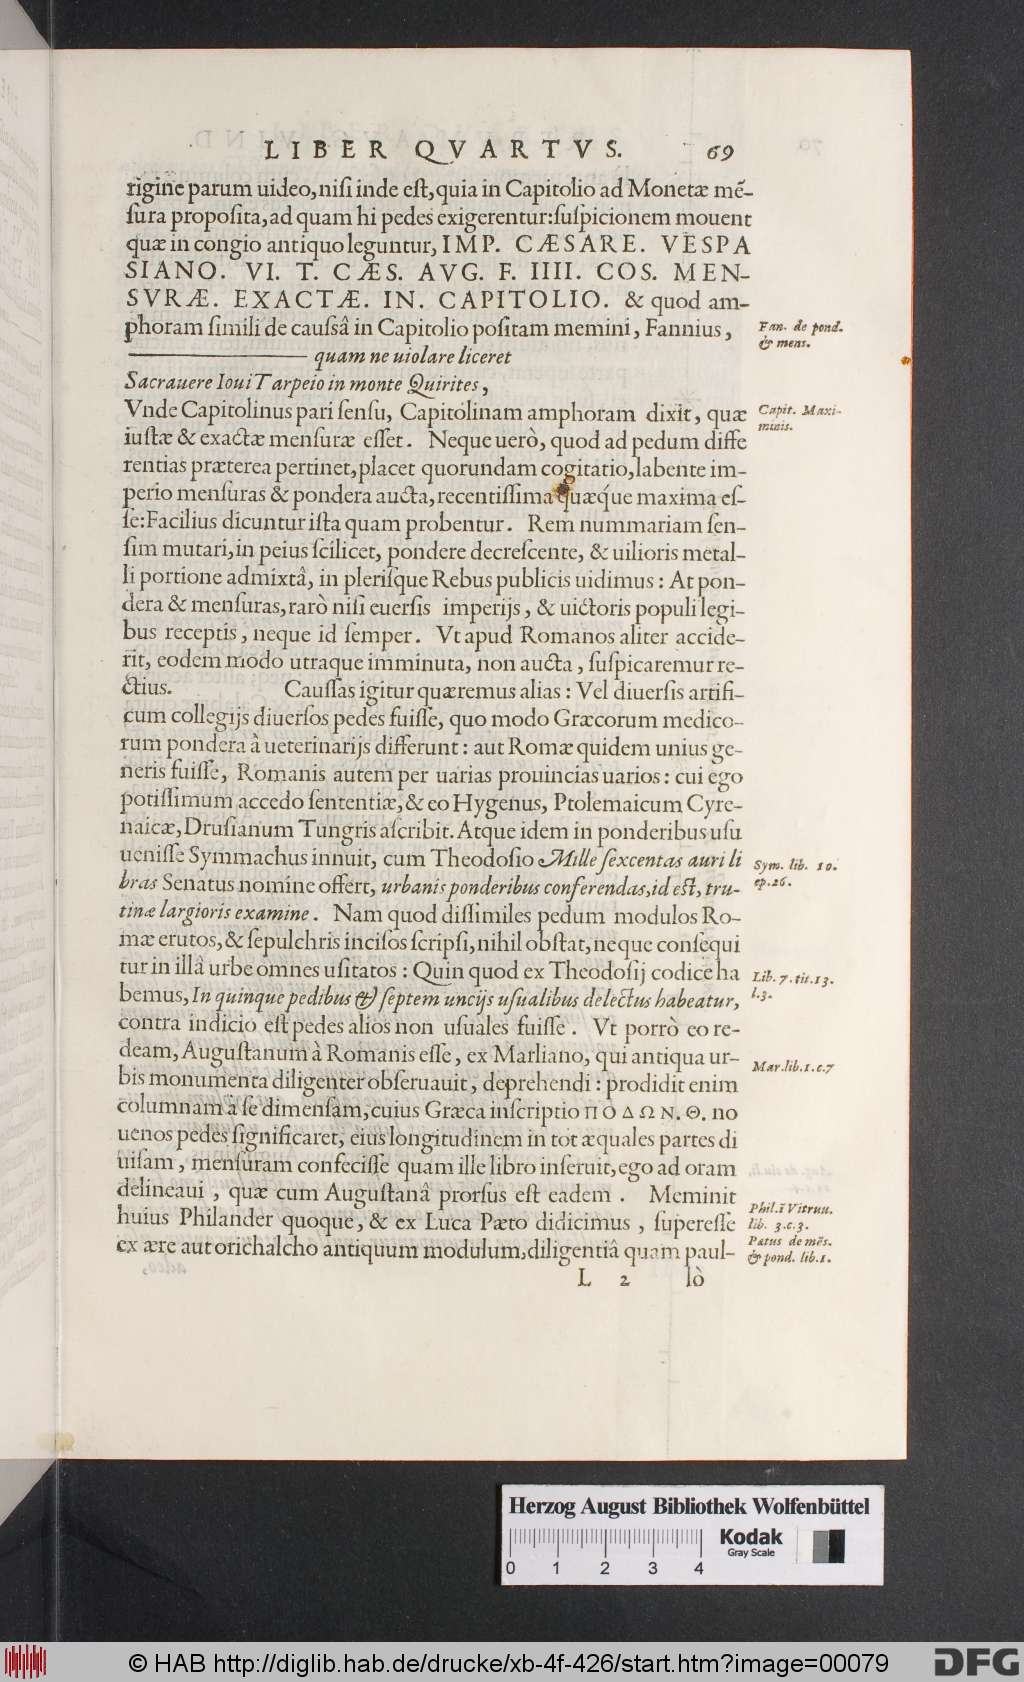 LIBER QVARTVS. 69
rigine parum uideo, nisi inde est, quia in Capitolio ad Monetæ mē-
sura proposita, ad quam hi pedes exigerentur: suspicionem mouent
quæ in congio antiquo leguntur, IMP. CÆSARE. VESPA
SIANO. VI. T. CÆS. AVG. F. IIII. COS. MEN-
SVRÆ. EXACTÆ. IN. CAPITOLIO. & quod am-
phoram simili de caussâ in Capitolio positam memini, Fannius,
Fan. de pond.
& mens.
quam ne uiolare liceret
Sacrauere Ioui Tarpeio in monte Quirites,
Vnde Capitolinus pari sensu, Capitolinam amphoram dixit, quæ
Capit. Maxi-
minis.
iustæ & exactæ mensuræ esset. Neque uerò, quod ad pedum diffe
rentias præterea pertinet, placet quorundam cogitatio, labente im-
perio mensuras & pondera aucta, recentissima quæq́ue maxima es-
se: Facilius dicuntur ista quam probentur. Rem nummariam sen-
sim mutari, in peius scilicet, pondere decrescente, & uilioris metal-
li portione admixtâ, in plerisque Rebus publicis uidimus: At pon-
dera & mensuras, rarò nisi euersis imperijs, & uictoris populi legi-
bus receptis, neque id semper. Vt apud Romanos aliter accide-
rit, eodem modo utraque imminuta, non aucta, suspicaremur re-
ctius. Caussas igitur quæremus alias: Vel diuersis artifi-
cum collegijs diuersos pedes fuisse, quo modo Græcorum medico-
rum pondera à ueterinarijs differunt: aut Romæ quidem unius ge-
neris fuisse, Romanis autem per uarias prouincias uarios: cui ego
potissimum accedo sententiæ, & eo Hygenus, Ptolemaicum Cyre-
naicæ, Drusianum Tungris ascribit. Atque idem in ponderibus usu
uenisse Symmachus innuit, cum Theodosio Mille sexcentas auri li
Sym. lib. 10.
ep. 26.
bras Senatus nomine offert, urbanis ponderibus conferendas, id est, tru-
tinæ largioris examine. Nam quod dissimiles pedum modulos Ro-
mæ erutos, & sepulchris incisos scripsi, nihil obstat, neque consequi
tur in illâ urbe omnes usitatos: Quin quod ex Theodosij codice ha
Lib. 7. tit. 13.
l. 3.
bemus, In quinque pedibus & septem uncijs usualibus delectus habeatur,
contra indicio est pedes alios non usuales fuisse. Vt porrò eo re-
deam, Augustanum à Romanis esse, ex Marliano, qui antiqua ur-
Mar. lib. 1. c. 7
bis monumenta diligenter obseruauit, deprehendi: prodidit enim
columnam à se dimensam, cuius Græca inscriptio ΠΟΔΩΝ. Θ. no
uenos pedes significaret, eius longitudinem in tot æquales partes di
uisam, mensuram confecisse quam ille libro inseruit, ego ad oram
delineaui, quæ cum Augustanâ prorsus est eadem. Meminit
huius Philander quoque, & ex Luca Pæto didicimus, superesse
Phil. ī Vitruu.
lib. 3. c. 3.
Pætus de mēs.
& pond. lib. 1.
ex ære aut orichalcho antiquum modulum, diligentiâ quam paul-
L 2 lò
Herzog August Bibliothek Wolfenbüttel
0 1 2 3 4
Kodak
Gray Scale
© HAB http://diglib.hab.de/drucke/xb-4f-426/start.htm?image=00079
DFG